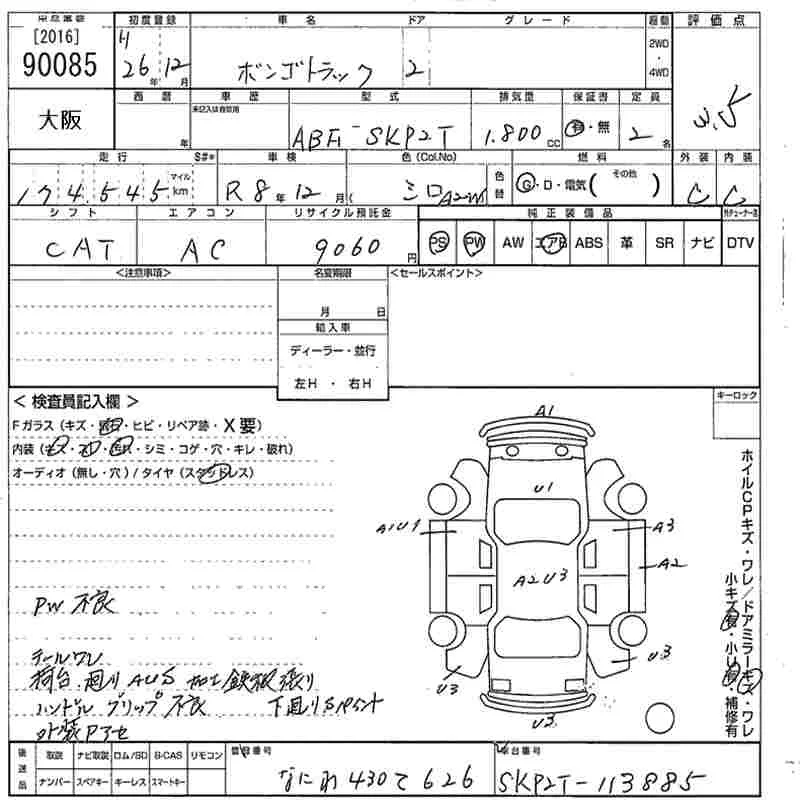 初度登録 車名 ドア グレード 駆動 評価点
[2016]
90085
H
26年 12月
ボンゴトラック 2
2WD
・
4WD
3.5
大阪
西暦 車歴 型式 排気量 保証書 定員
未記入は自家用
年 ABF-SKP2T 1.800 CC 有・無 2名
走行 S#* 車検 色(Col.No) 色替 燃料 外装 内装
174,545 マイル km R8年12月 シロ A2W G・D・電気( その他 ) C C
シフト エアコン リサイクル預託金 純正装備品
CAT AC 9060円 PS PW AW エアB ABS 革 SR ナビ DTV
<注意事項> 名変期限 <セールスポイント>
月 日
輸入車
ディーラー・並行
左H ・ 右H
< 検査員記入欄 > キーロック
Fガラス (キズ・ ・ヒビ・リペア跡・X要)
内装 (キズ・ ・ ・シミ・コゲ・穴・キレ・破れ)
オーディオ (無し・穴) / タイヤ (スタッドレス)
A1
U1
A1U1 A3
A2
A2U3
U3 U3
U3
ホイルCPキズ・ワレ/ドアミラーキズ・ワレ
小キズ有・小U有・補修有
PW 不良
テールワレ
荷台 廻り AUS 加工 鉄板張り
ハンドル グリップ不良 下廻りSペイント
外装Pアセ
後送品 取説 ナビ取説 ロム/SD B-CAS リモコン 登録番号 車台番号
ナンバー スペアキー キーレス スマートキー なにわ 430て 626 SKP2T-113885